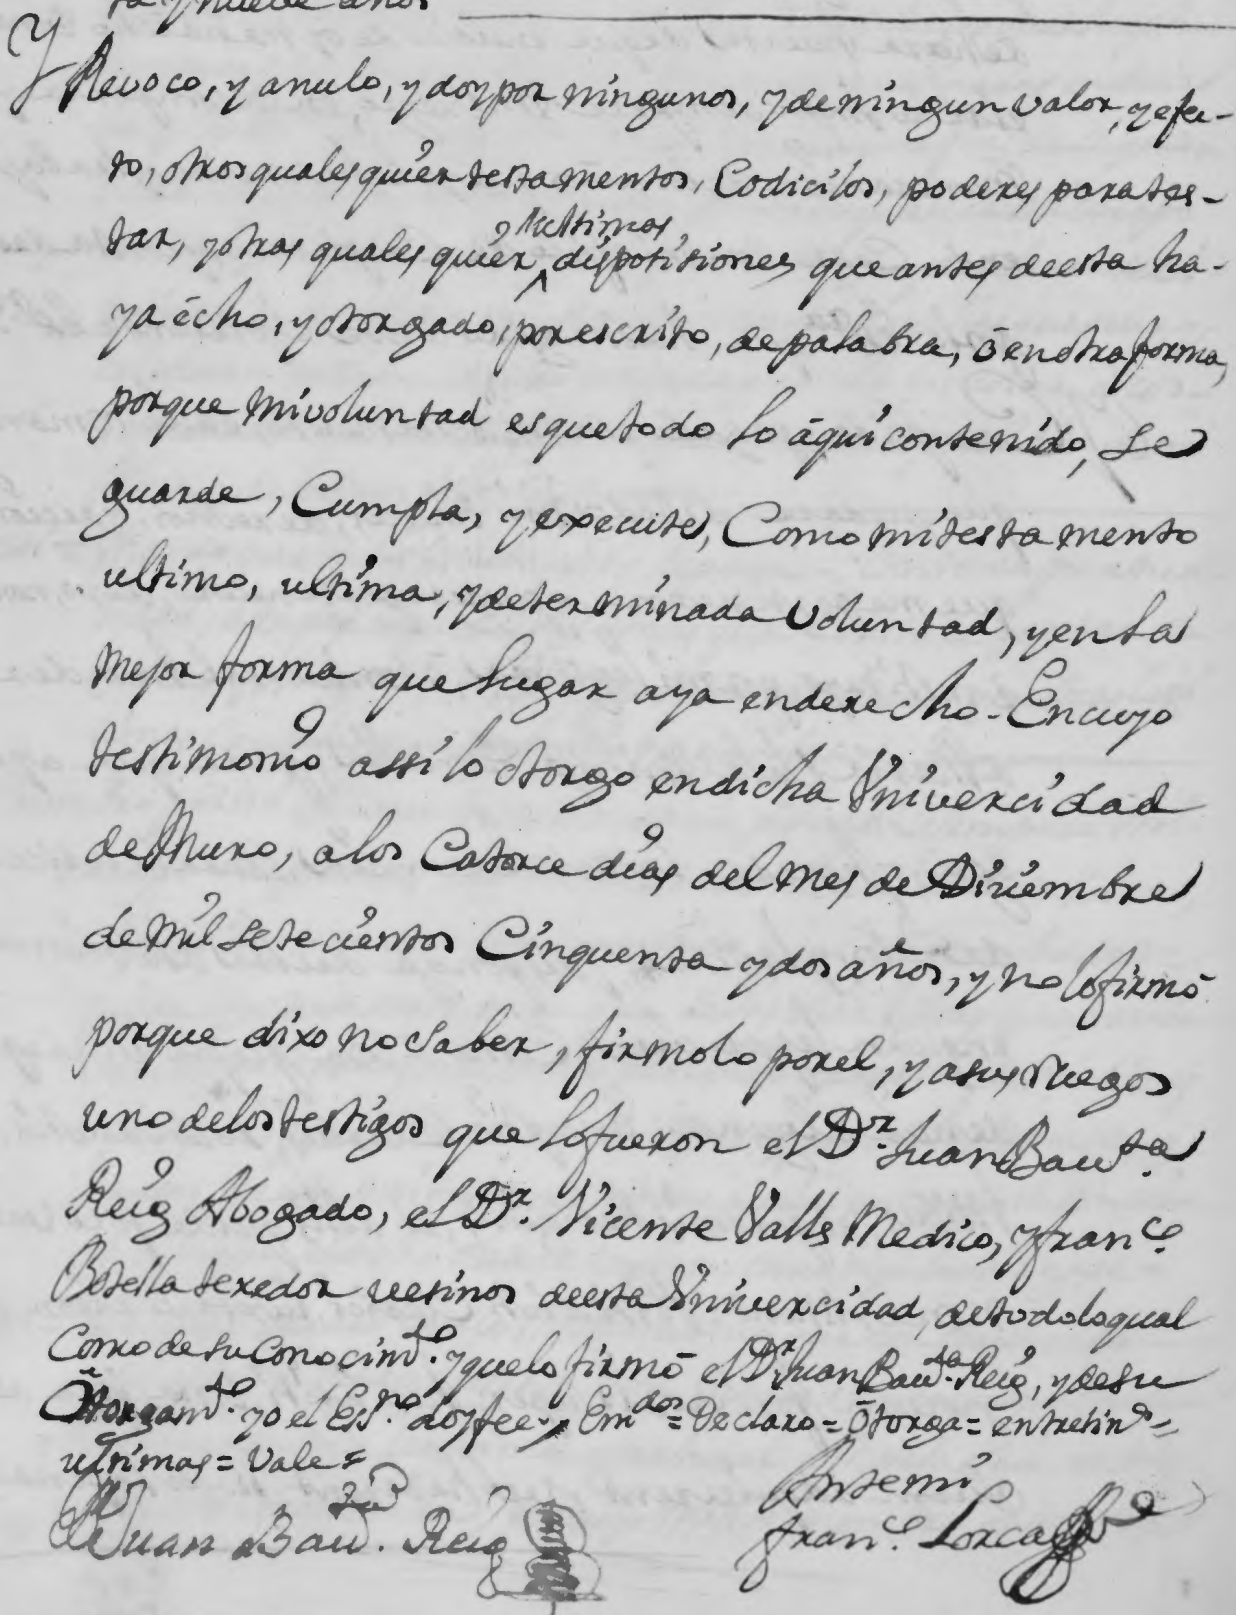 ta y nueve años
Y Revoco, y anulo, y doy por ningunos, y de ningun valor, y efec-
to, otros quales quier testamentos, Codicilos, poderes para tes-
tar, y otras quales quier ^ y Ultimas, dispotisiones que antes de esta ha-
ya écho, y otorgado, por escrito, de palabra, ó en otra forma,
porque mi voluntad es que todo lo áqui contenido, se
guarde, Cumpla, y execute, Como mi testamento
ultimo, ultima, y determinada voluntad, y en la
mejor forma que lugar aya en derecho. En cuyo
testimonio assi lo otorgo en dicha Univercidad
de Muro, a los Catorce dias del mes de Diciembre
de mil setecientos Cinquenta y dos años, y no lo firmó
porque dixo no saber, firmolo por el, y a sus ruegos
uno de los testigos que lo fueron el Dr. Juan Bauta.
Reig Abogado, el Dr. Vicente Valls Medico, y Franco.
Botella texedor vesinos de esta Univercidad, de todo lo qual
Como de su Conocimto. y que lo firmó el Dr. Juan Bauta. Reig, y de su
Otorgamto. yo el Essno. doy fee. Emdos = Declaro = Otorga = entrelindo =
ultimas = Vale =
Juan Bauta. Reig
Ante mi
Franco. Lorca